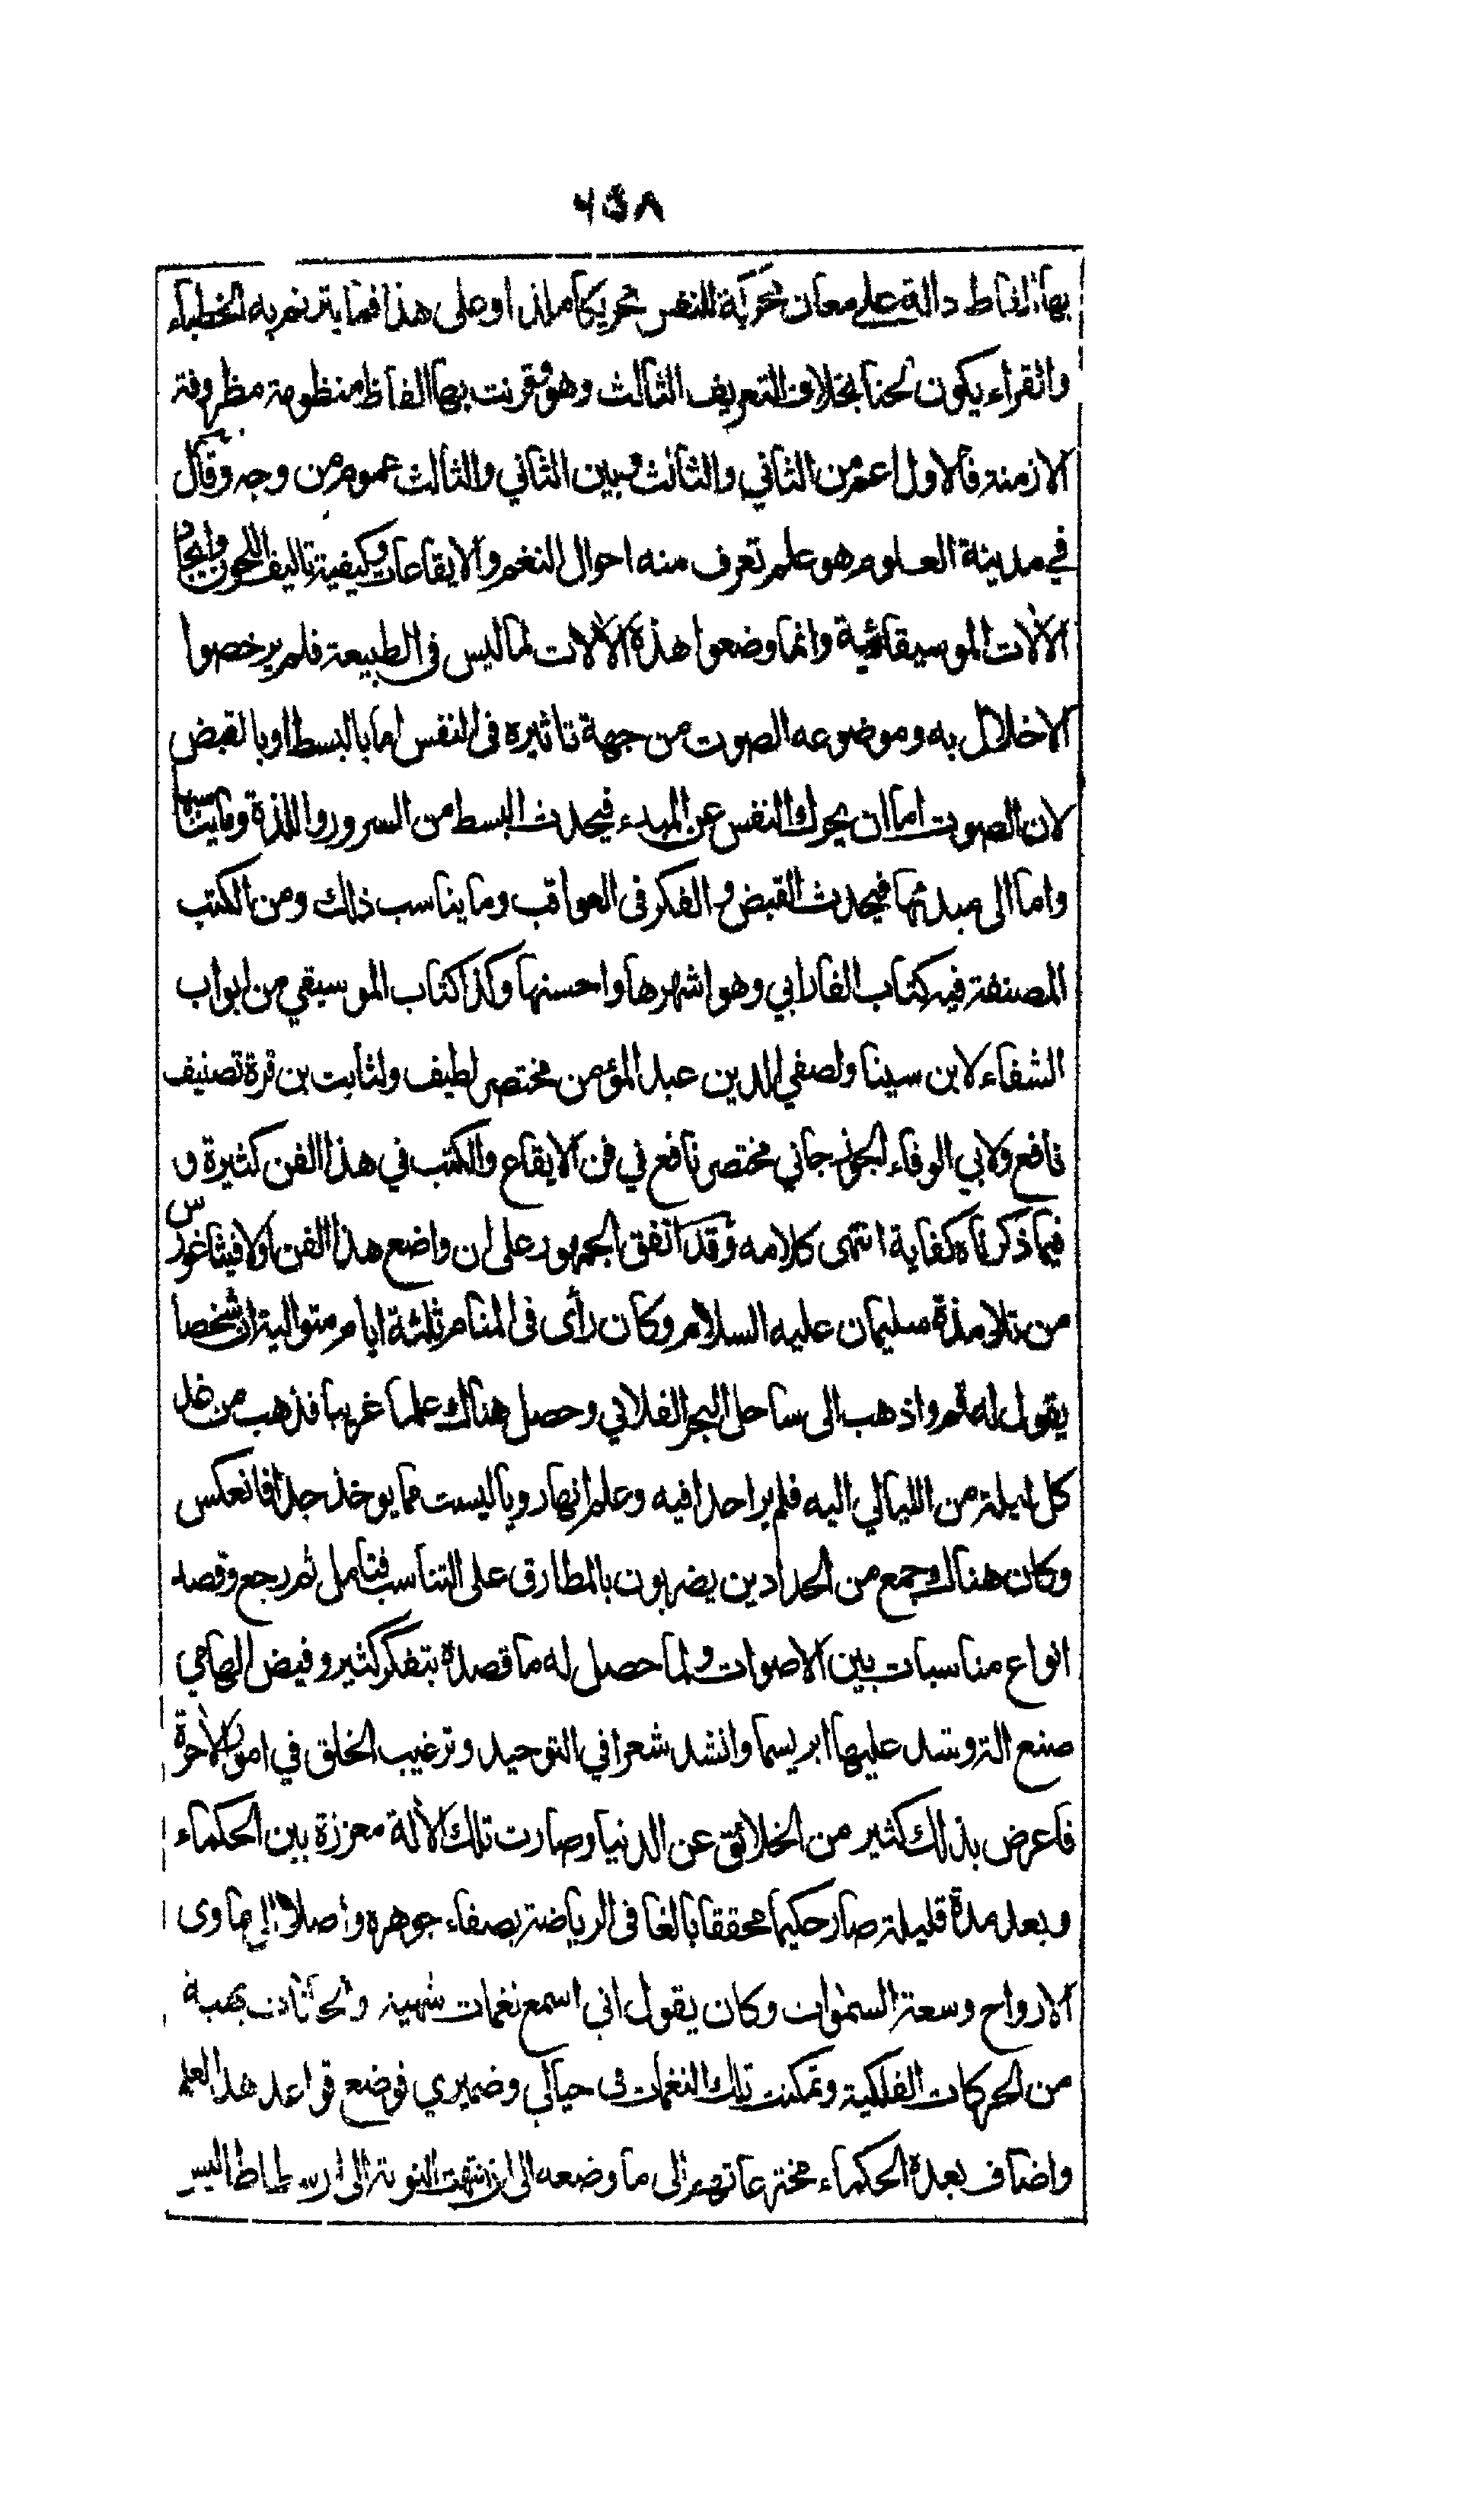 ٦٥٨
بها الفاظ دالة على معان محركة للنفس تحريكا ملذا وعلى هذا فما يترنم به الخطباء
والقراء يكون لحنا بخلاف التعريف الثالث وهو وقرنت بها الفاظ منظومة مظروفة
الازمنة فالاول اعم من الثاني والثالث وبين الثاني والثالث عموم من وجه وقال
في مدينة العلوم هو علم تعرف منه احوال النغم والايقاعات وكيفية تاليف اللحون وايجاد
الآلات الموسيقائية وانما وضعوا هذه الآلات لما ليس فى الطبيعة فلم يرخصوا
الاخلال به وموضوعه الصوت من جهة تاثيره فى النفس اما بالبسط او بالقبض
لان الصوت اما ان يحرك النفس عن المبدء فيحدث البسط من السرور واللذة وما يناسبها
واما الى مبدئها فيحدث القبض والفكر فى العواقب وما يناسب ذلك ومن الكتب
المصنفة فيه كتاب الفارابي وهو اشهرها واحسنها وكذا كتاب الموسيقي من ابواب
الشفاء لابن سينا ولصفي الدين عبد المؤمن مختصر لطيف ولثابت بن قرة تصنيف
نافع ولابي الوفاء الجوزجاني مختصر نافع في فن الايقاع والكتب في هذا الفن كثيرة و
فيما ذكرناه كفاية انتهى كلامه وقد اتفق الجمهور على ان واضع هذا الفن اولا فيثاغورس
من تلامذة سليمان عليه السلام وكان رأى فى المنام ثلثة ايام متوالية ان شخصا
يقول له قم واذهب الى ساحل البحر الفلاني وحصل هناك علما غريبا فذهب من غد
كل ليلة من الليالي اليه فلم ير احدا فيه وعلم انها رويا ليست مما يوخذ جدا فانعكس
وكان هناك جمع من الحدادين يضربون بالمطارق على التناسب فتامل ثم رجع وقصد
انواع مناسبات بين الاصوات ولما حصل له ما قصده بتفكر كثير وفيض الهامي
صنع الة وشد عليها ابريسما وانشد شعرا في التوحيد وترغيب الخلق في امور الآخرة
فاعرض بذلك كثير من الخلائق عن الدنيا وصارت تلك الآلة معززة بين الحكماء
وبعد مدة قليلة صار حكيما محققا بالغا فى الرياضة بصفاء جوهره واصلا الى ماوى
الارواح وسعة السموات وكان يقول اني اسمع نغمات شهية والحانا بهية
من الحركات الفلكية وتمكنت تلك النغمات فى خيالي وضميري فوضع قواعد هذا العلم
واضاف بعده الحكماء مخترعاتهم الى ما وضعه الى ان انتهت النوبة الى ارسطاطاليس